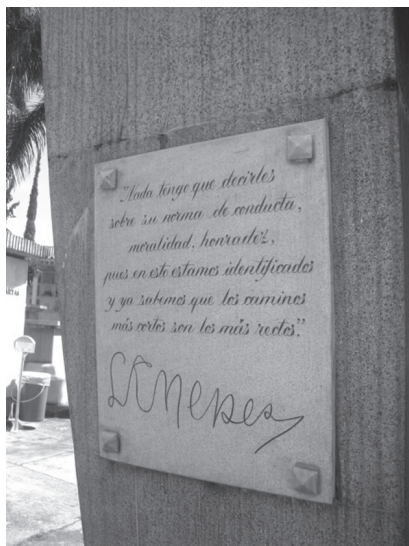 "Nada tengo que decirles
sobre su norma de conducta,
moralidad, honradez,
pues en esto estamos identificados
y ya sabemos que los caminos
más cortos son los más rectos."